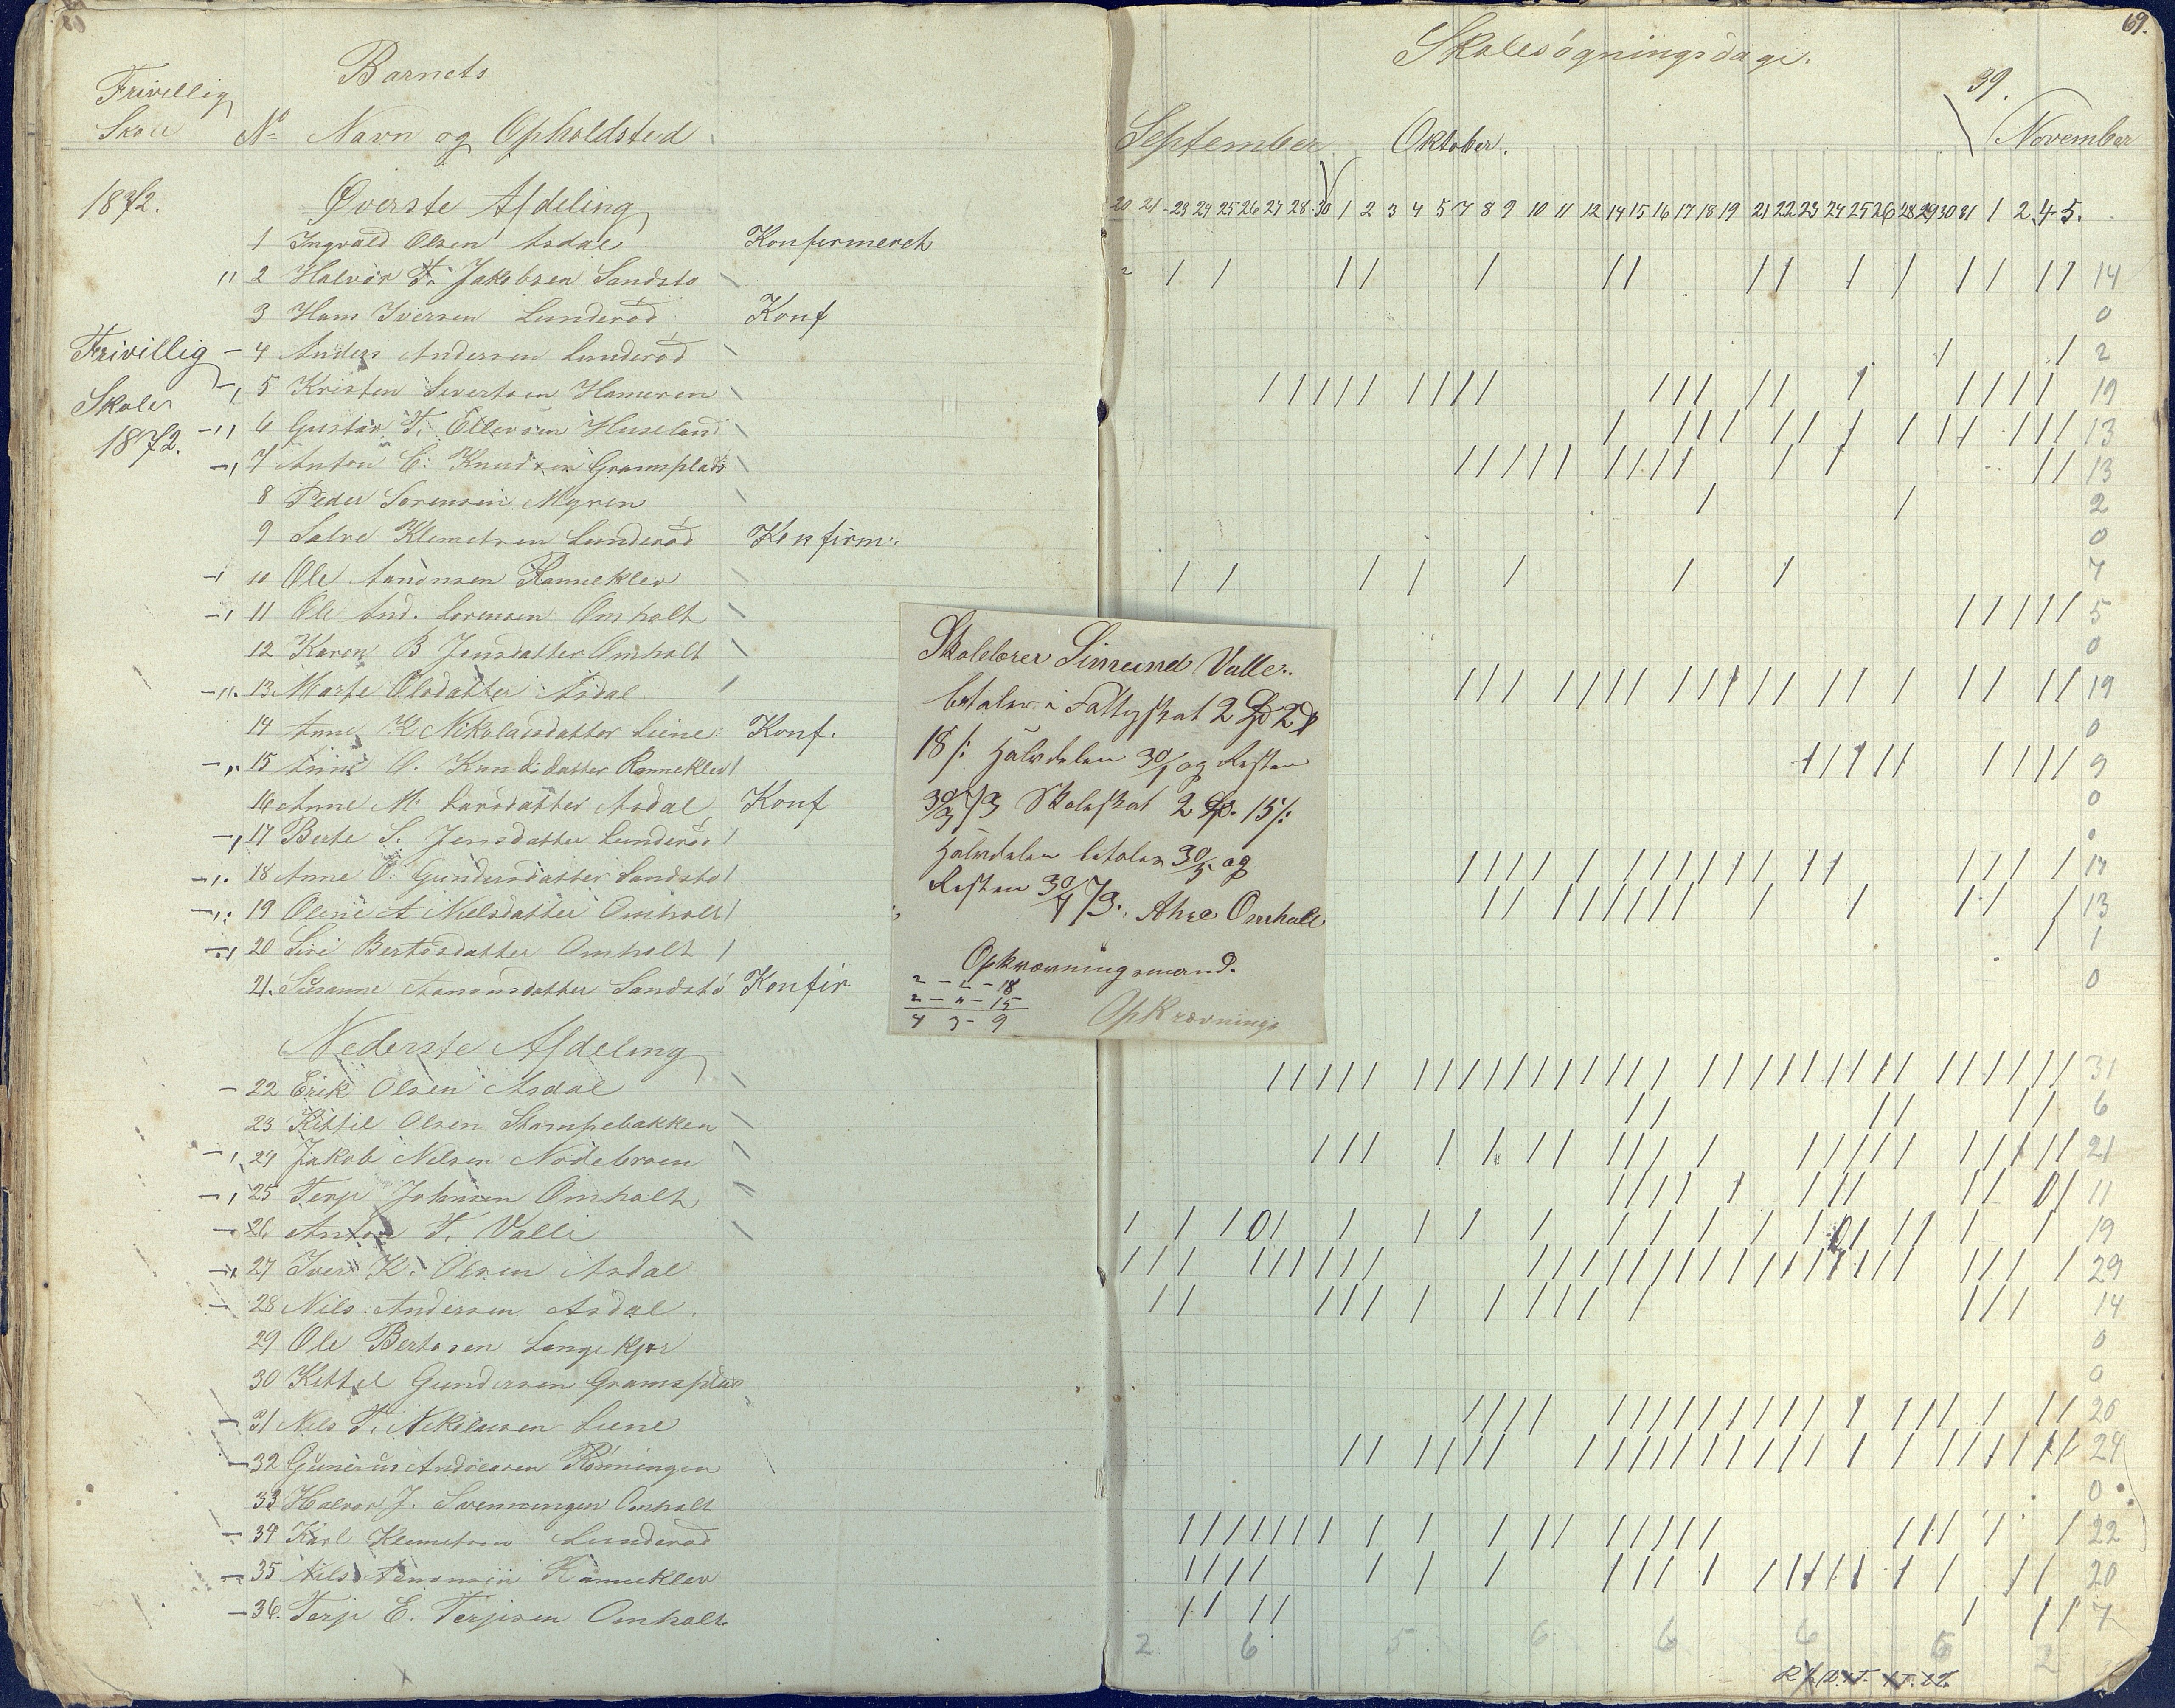 69.
Frivillig
Skole
Barnets
No Navn og Opholdsted
1872.
Øverste Afdeling
1 Ingvald Olsen Asdal Konfirmeret
2 Halvor T. Jakobsen Sandstø
3 Hans Iversen Lunderød Konf
Frivillig
Skole
1872.
4 Anders Andersen Lunderød
5 Kristen Sivertsen Hameren
6 Gustav T. Ellevsen Huseland
7 Anton C. Knudsen Gramsplads
8 Peder Sørensen Myren
9 Salve Klemetsen Lunderød Konfirm.
10 Ole Aanonsen Ramneklev
11 Ole And. Lorensen Omholt
12 Karen B Jensdatter Omholt
13 Marte Olsdatter Asdal
14 Anne K Nikolaisdatter Liene Konf.
15 Anne O. Knudsdatter Ramneklev
16 Anne M. Larsdatter Asdal Konf
17 Berte S. Jensdatter Lunderød
18 Anne O. Gundersdatter Sandstø
19 Oline A Nielsdatter Omholt
20 Siri Bertosdatter Omholt
21. Susanne Aanonsdatter Sandstø Konfir
Nederste Afdeling
22 Erik Olsen Asdal
23 Kittil Olsen Stampebakken
24 Jakob Nilsen Nødebroen
25 Terje Johnsen Omholt
26 Anton T. Valle
27 Iver K. Olsen Asdal
28 Nils Andersen Asdal.
29 Ole Bertosen Langekjær
30 Kittel Gundersen Gramsplas
31 Nils T. Nikolaisen Liene
32 Gunerius Andreasen Rønningen
33 Halvor J. Svenningen Omholt
34 Karl Klemetsen Lunderød
35 Nils Aanonsen Ramneklev
36. Terje E. Terjesen Omholt
Skolesøgningsdage.
39.
September Oktober. November
20 21 23 24 25 26 27 28 30 1 2 3 4 5 7 8 9 10 11 12 14 15 16 17 18 19 21 22 23 24 25 26 28 29 30 31 1 2 4 5.
14
0
2
19
13
13
2
0
7
5
0
19
0
9
0
0
17
13
1
0
31
6
21
11
19
29
14
0
0
20
24
0
22
20
7
2 6 5 6 6 6 6 2
Skolelærer Simund Valle
betaler i Fattigskat 2 Spd 2
18 /: Halvdelen 30/1 og Resten
30/3 73 Skoleskat 2 Sp. 15 /:
Halvdelen betales 30/5 og
Resten 30/7 73. Omholt
Opkrævningsmand.
2 - 2 - 18
2 - " - 15
4 3 - 9
Opkrævnings